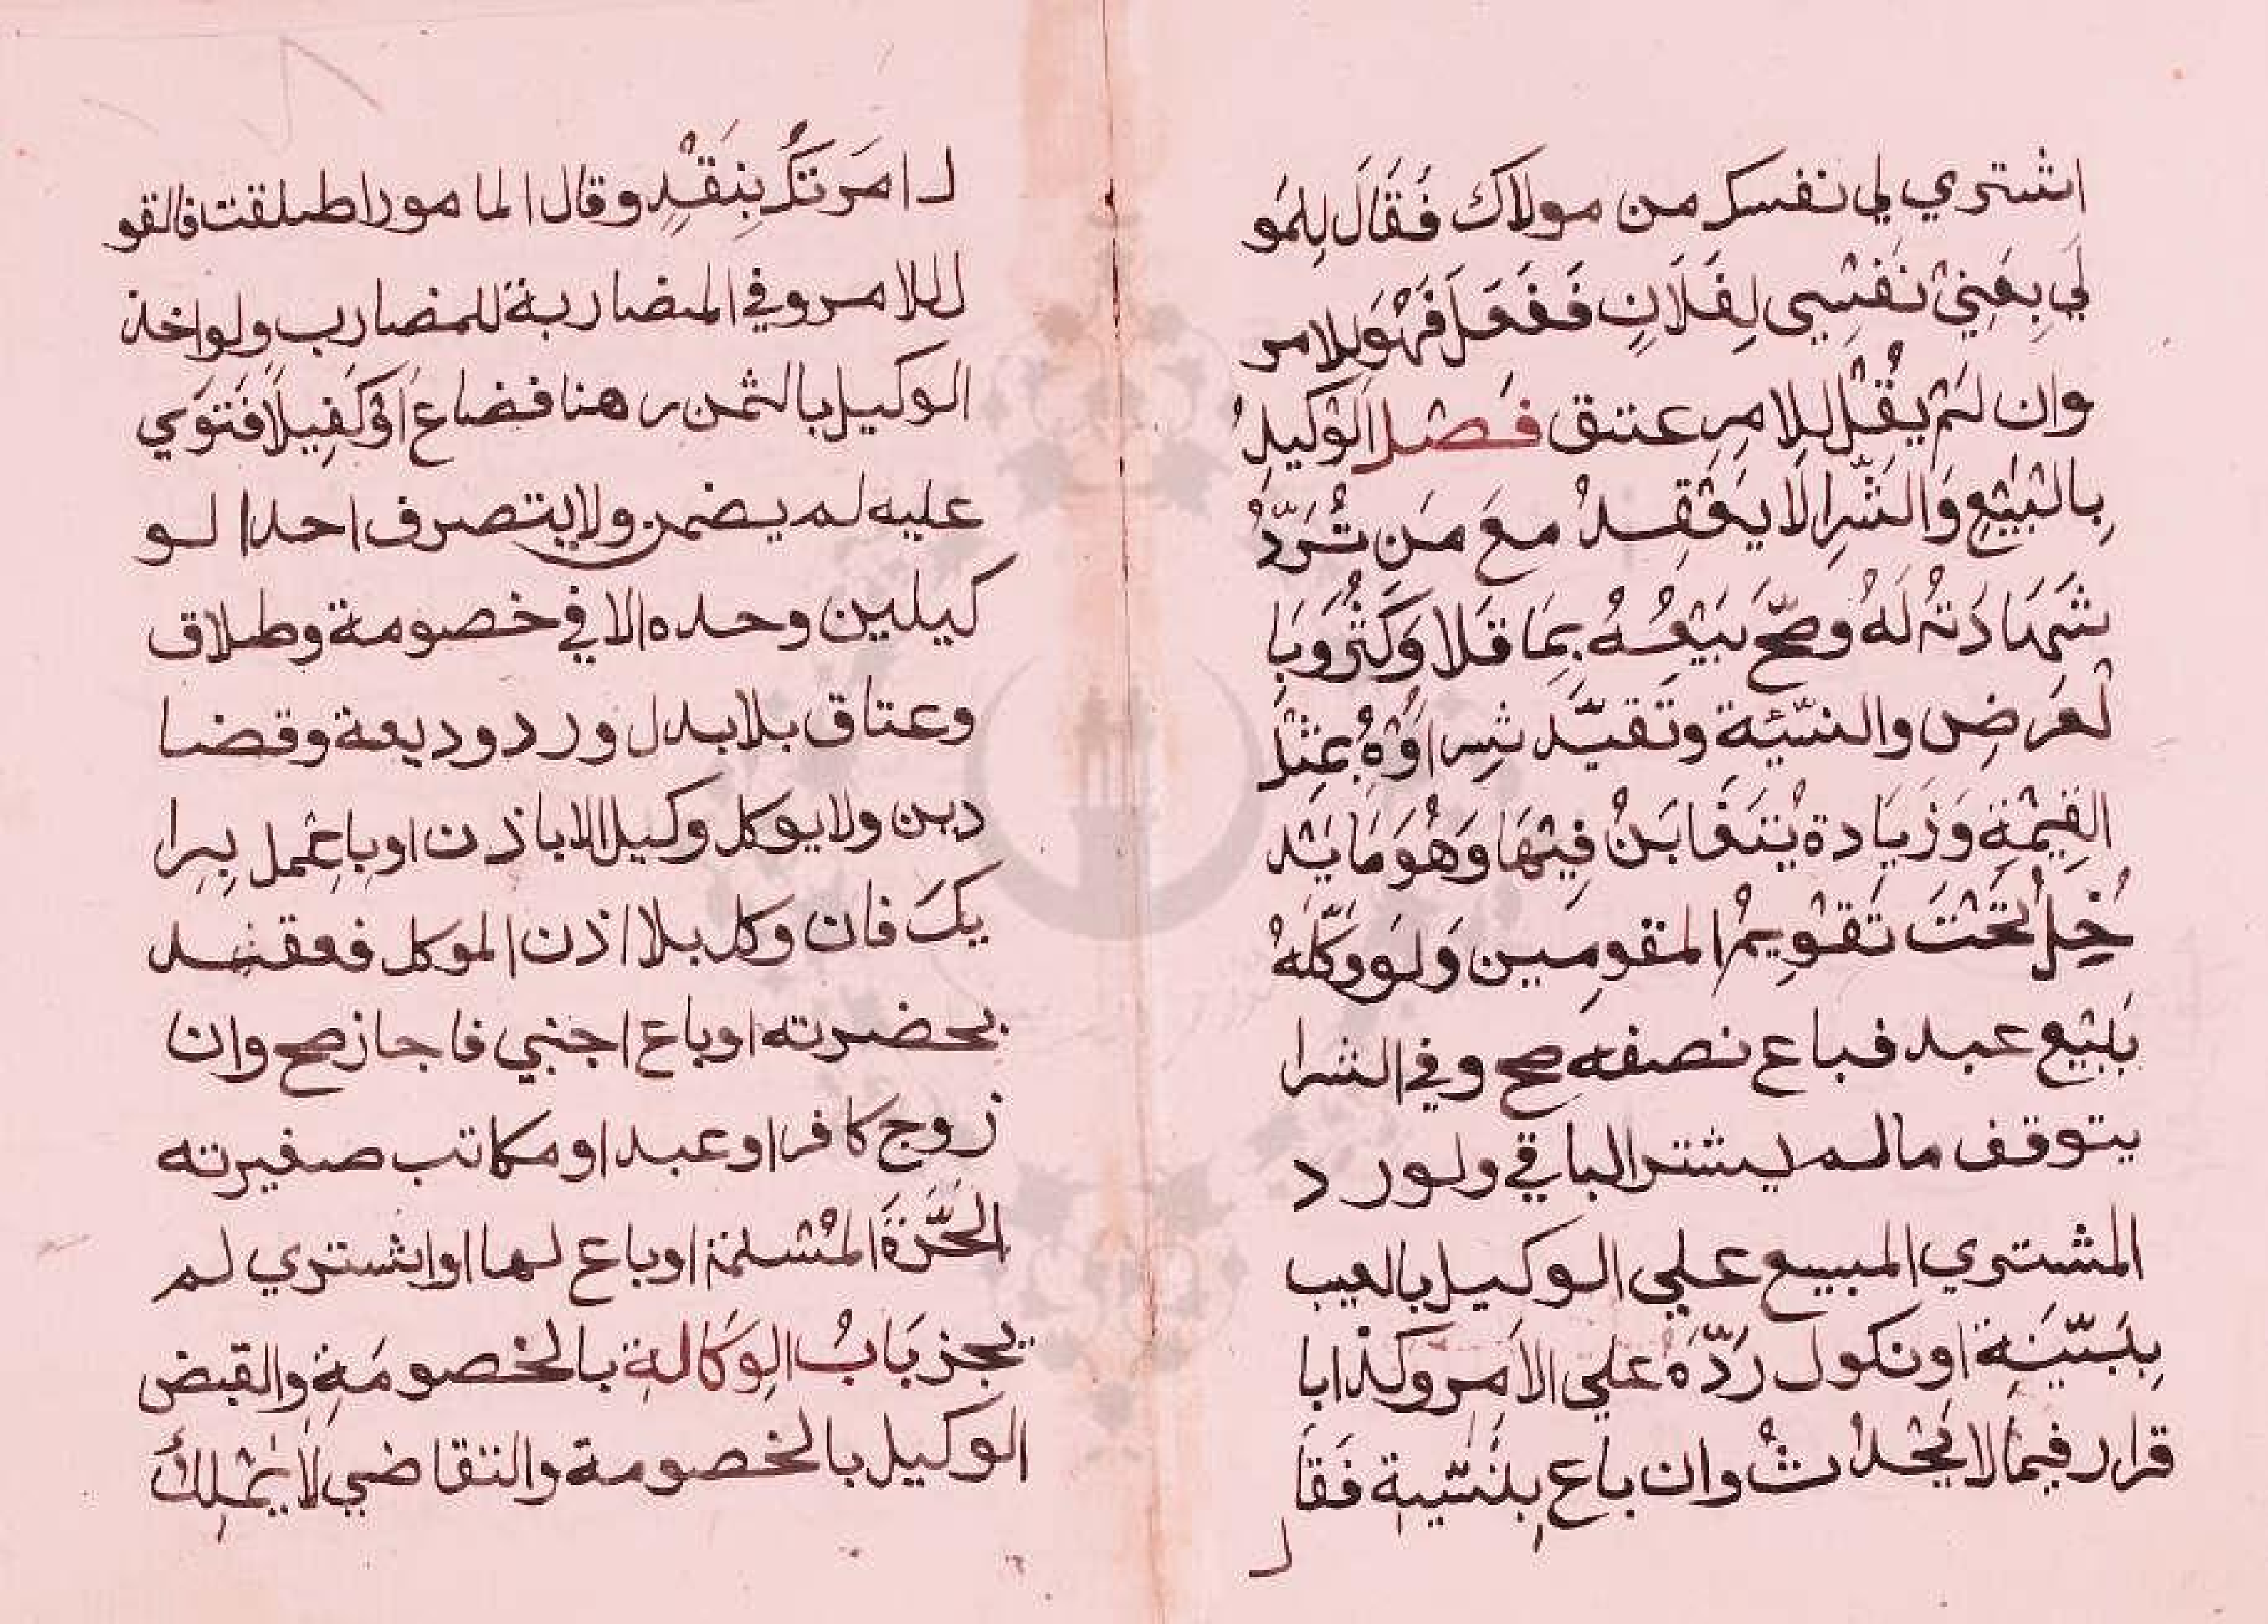 اشتري لي نفسك من مولاك فَقَالَ لِلمَو
لَي بِعْنِيْ نَفْسِي لِفُلَانٍ فَفَعَلَ فَهْوَ للامر
وان لَمْ يَقُلْ للامِرِ عتق فَصْل الوَكيلُ
بِالْبَيْعِ وَالشّرا لَا يَعْقِدُ معَ مَن تُرَدُّ
شَهَادَتُهُ لَهُ وصَحَّ بَيْعُهُ بِمَا قَلا وَكَثُرَ وبَا
لْعَرَضِ والنسّيئة وتَقيّد شِراؤُهُ بمثل
القِيْمَةِ وَزيَادة يُتَغَابَنُ فِيْهَا وَهُوَ مَا يَدْ
خُلُ تَحْتَ تَقْوِيمُ المقومين وَلَو وَكَّلَهُ
بَلبَيْعِ عبد فباع نصفه صح وفي الشرا
يتوقف مالم يشتر الباقي ولورد
المشتري المبيع علي الوكيل بالعيب
بِبَيّنَةِ او نكول رَدَّهُ علي الاَمر وكذا با
قرار فيما لا يَحْدُثْ وان باع بِنَسَّيةِ فَقَا
ل
ل امَرتُكَ بِنَقْدٍ وقال المامور اطلقت فالقو
ل للامر وفي المضاربة للمضارب ولواخذ
الوكيل بالثمن رهنا فضاع اوْ كَفِيلًا فَتَوَي
عليه لم يضمن ولا يتصرف احدا لو
كيلين وحده الا في خصومة وطلاق
وعتاق بلابدل ورد وديعة وقضا
دين ولا يوكل وكيل الاباذن اوبا عمل بِرا
يكَ فان وكل بلا اذن الموكل فعقد
بحضرته اوباع اجنبي فاجاز صح وان
زوج كافر اوعبد او مكاتب صغيرته
الحُرّةَ المُسْلمة اوباع لها اواشتري لم
يجز بَابُ الوَكَالةِ بالخصومَةِ والقبض
الوكيل بالخصومة والتقاضي لَا يَمْلِكُ